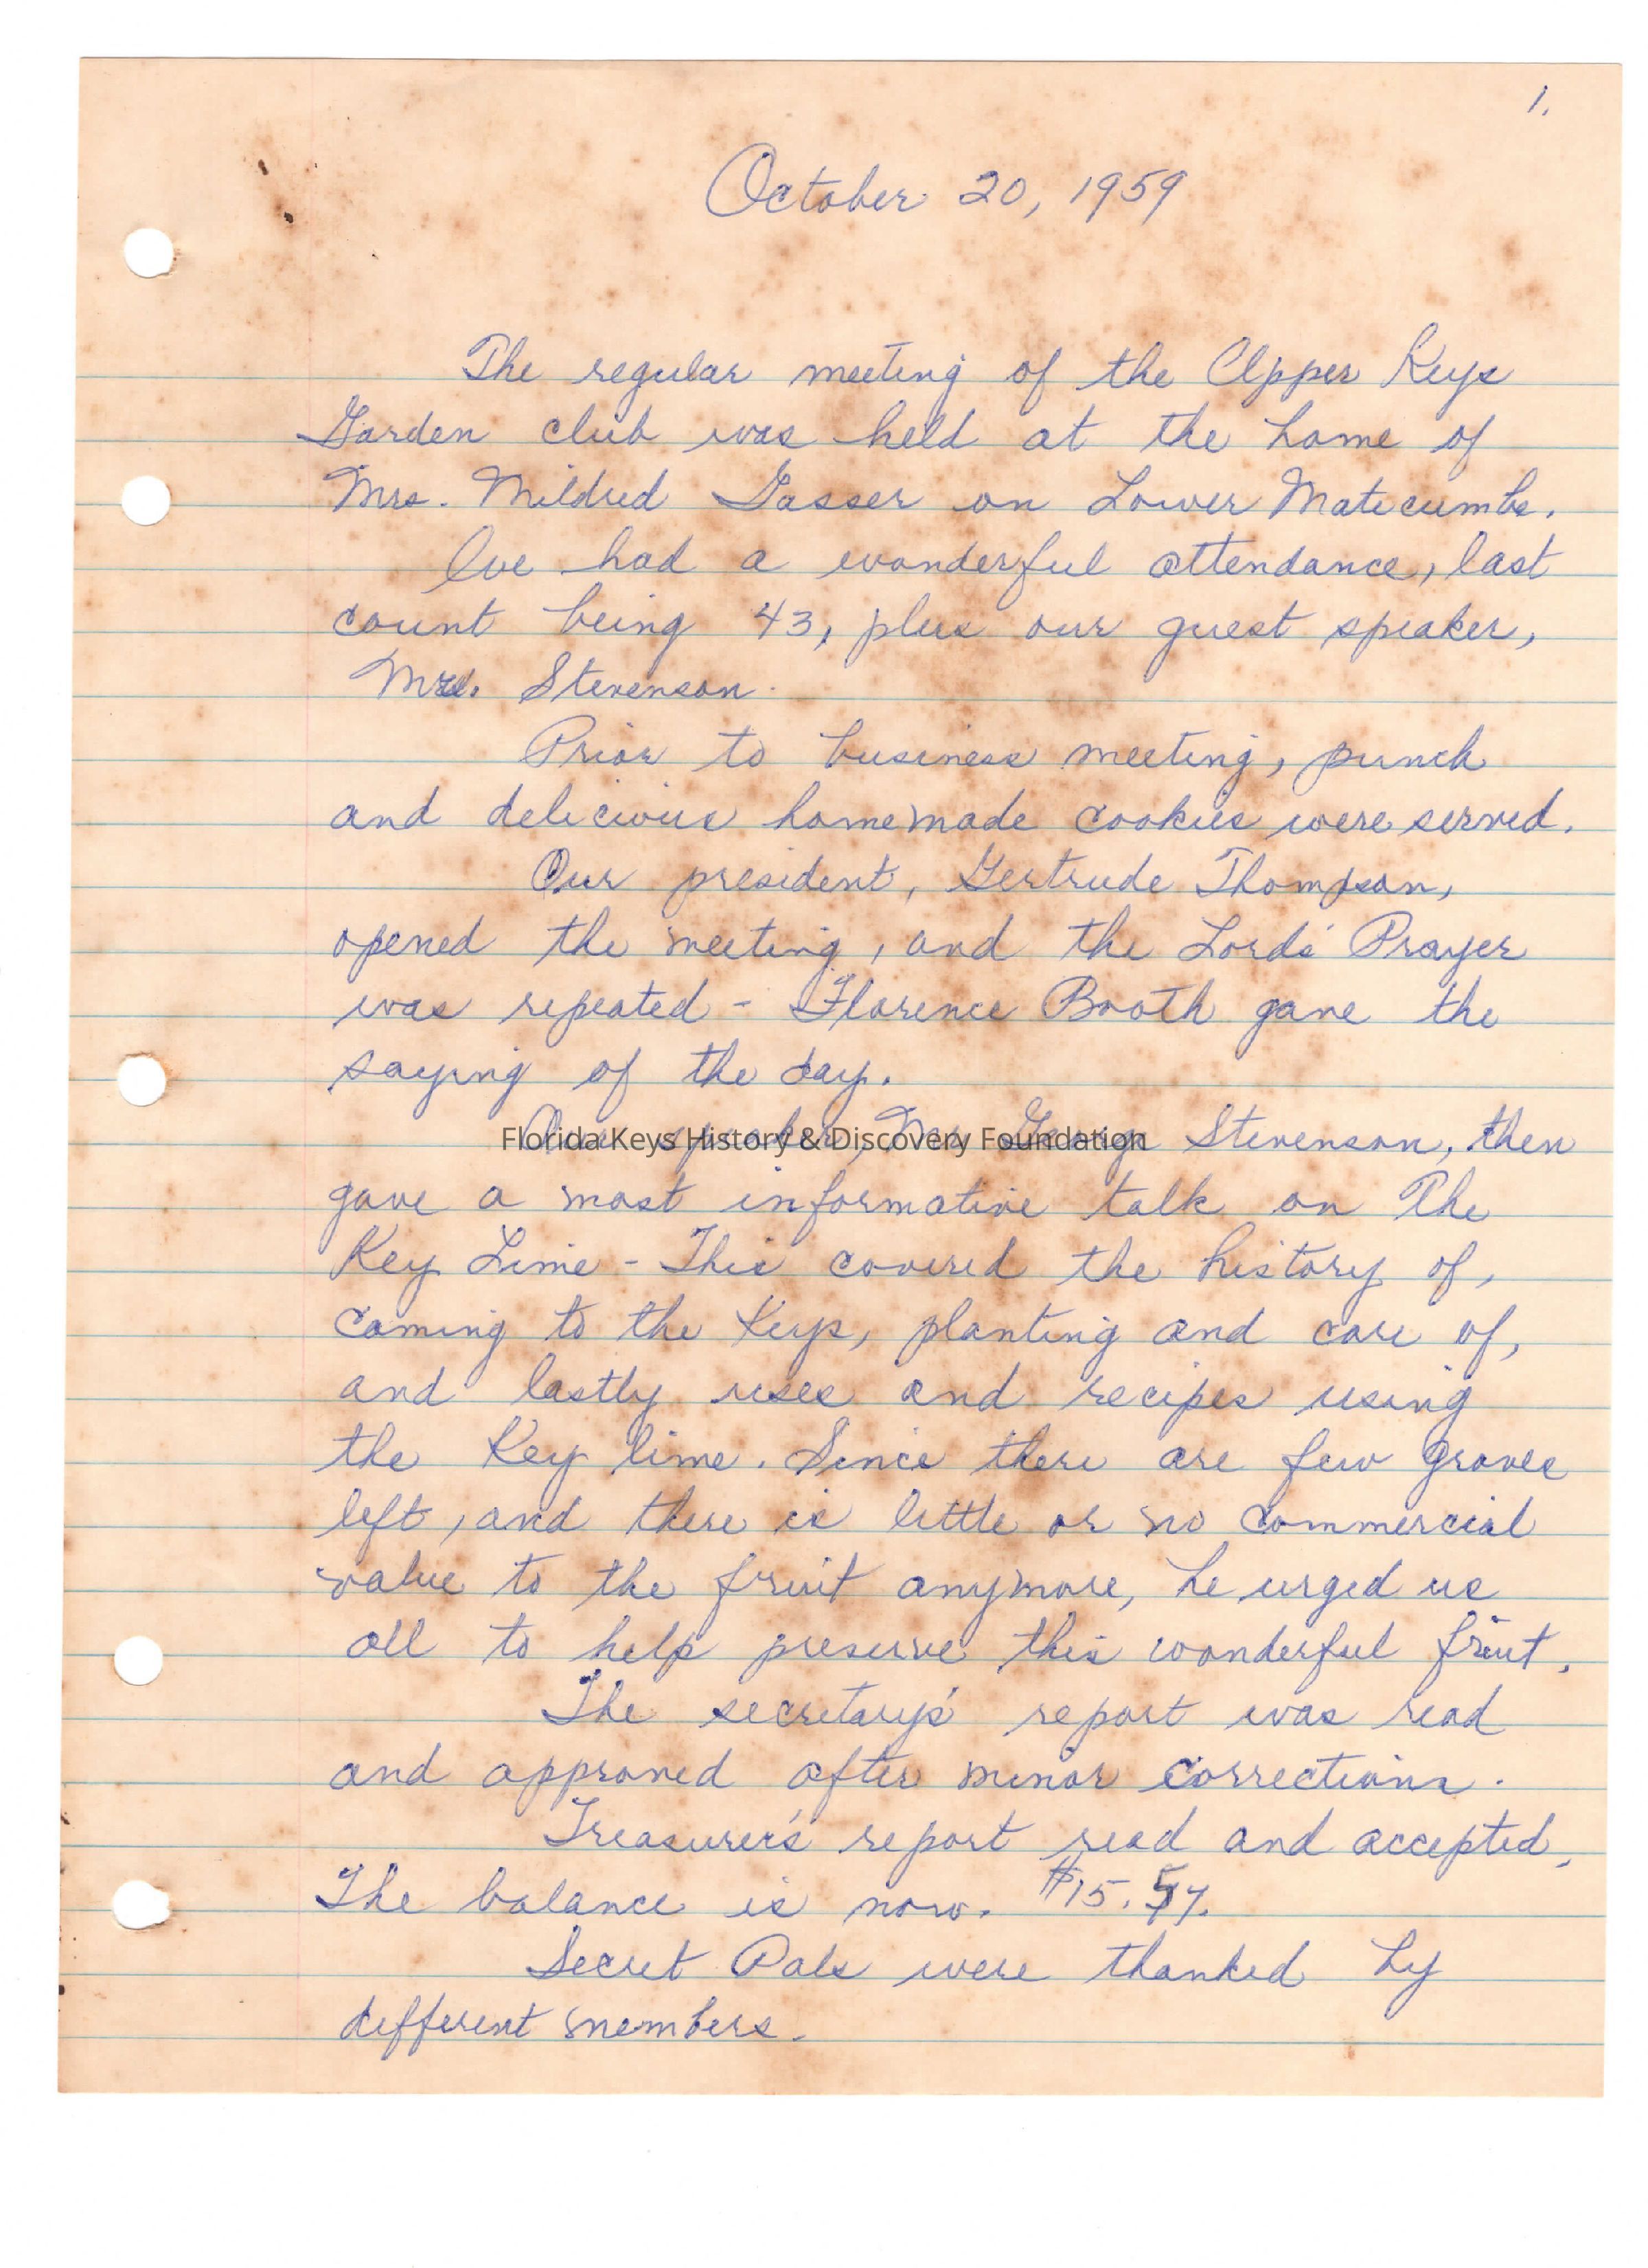 1.
October 20, 1959
The regular meeting of the Upper Keys
Garden club was held at the home of
Mrs. Mildred Gasser on Lower Matecumbe.
We had a wonderful attendance, last
count being 43, plus our guest speaker,
Stevenson.
Prior to business meeting, punch
and delicious homemade cookies were served.
Our president, Gertrude Thompson,
opened the meeting, and the Lords' Prayer
was repeated - Florence Booth gave the
saying of the day.
Our speaker, Mr. George Stevenson, then
Florida Keys History & Discovery Foundation
gave a most informative talk on The
Key Lime - This covered the history of,
coming to the Keys, planting and care of,
and lastly uses and recipes using
the Key lime. Since there are few groves
left, and there is little or no commercial
value to the fruit anymore, he urged us
all to help preserve this wonderful fruit.
The secretary's report was read
and approved after minor corrections.
Treasurer's report read and accepted.
The balance is now. $15.57.
Secret Pals were thanked by
different members.